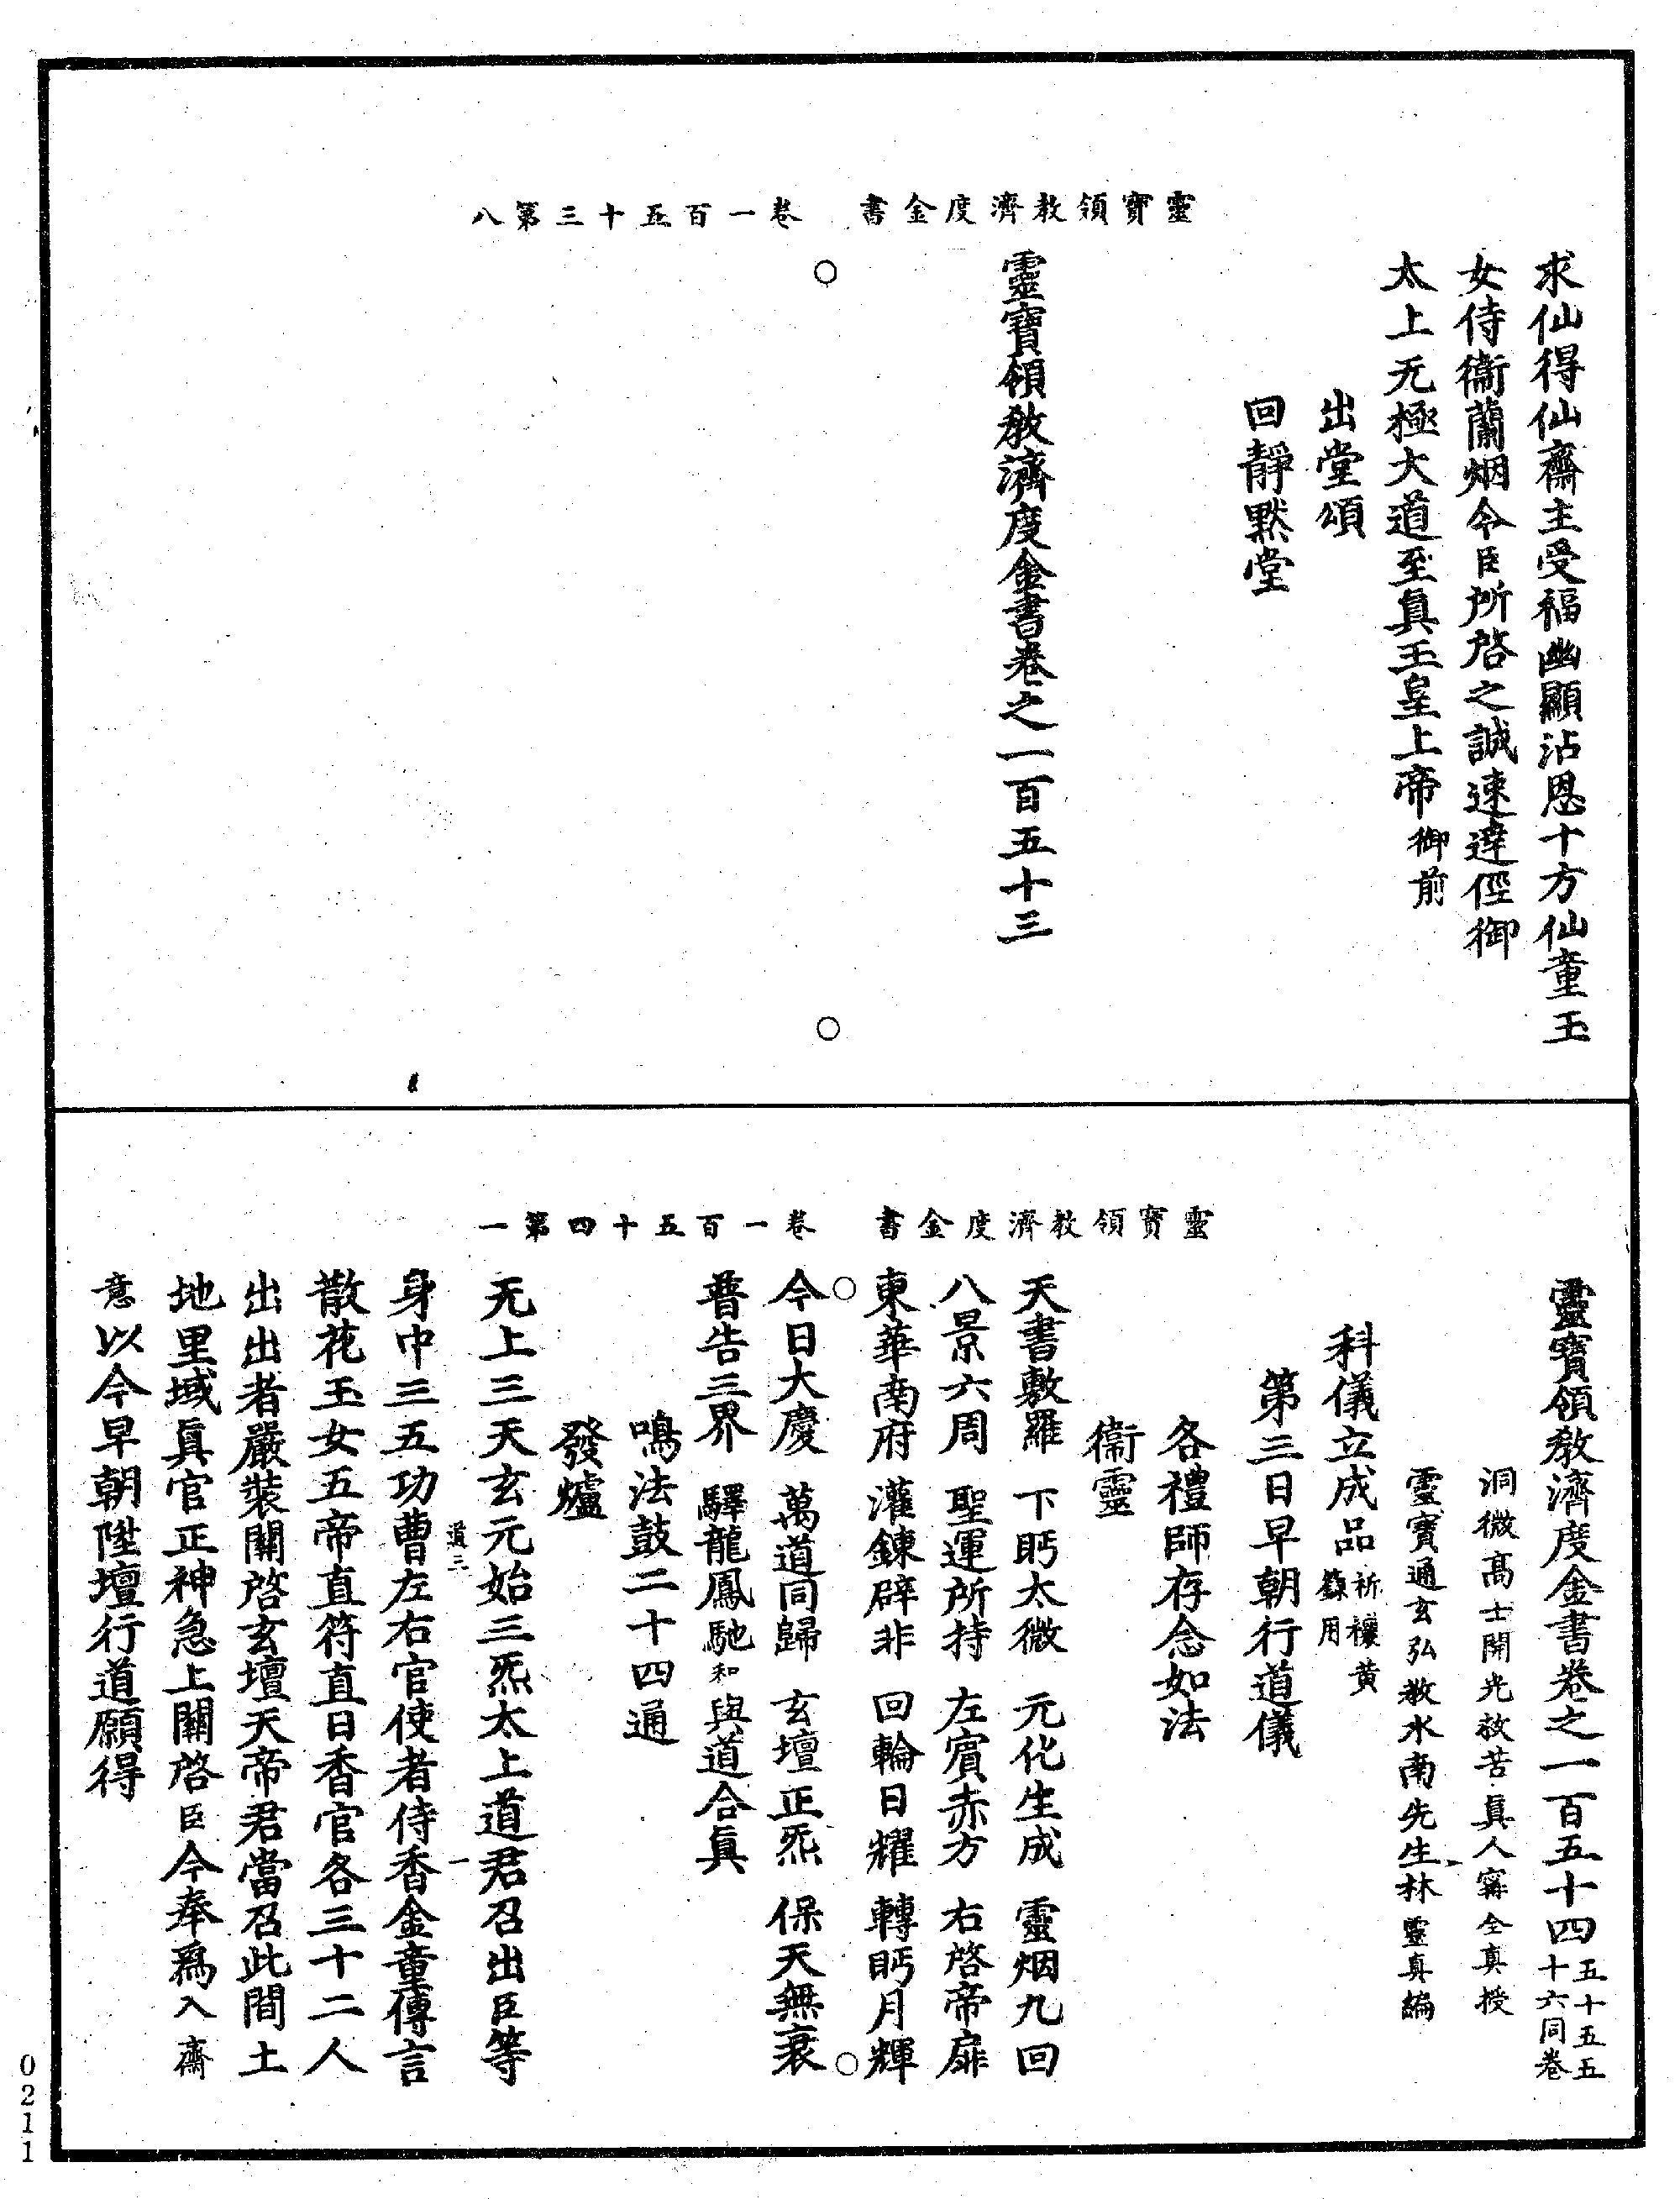 靈寶領教濟度金書　卷一百五十三第八
求仙得仙齋主受福幽顯沾恩十方仙童玉
女侍衞蘭烟令臣所啓之誠速達徑御
太上无極大道至眞玉皇上帝御前
出堂頌
回靜默堂
靈寶領敎濟度金書卷之一百五十三
靈寶領教濟度金書　卷一百五十四第一
靈寶領敎濟度金書卷之一百五十四五十五五十六同卷
洞微高士開光救苦眞人甯全真授
靈寶通玄弘教水南先生林靈真編
科儀立成品祈禳黄籙用
第三日早朝行道儀
各禮師存念如法
衞靈
天書敷羅　下眄太微　元化生成　靈烟九回
八景六周　聖運所持　左賓赤方　右啓帝扉
東華南府　灌鍊辟非　回輪日耀　轉眄月輝
今日大慶　萬道同歸　玄壇正炁　保天無衰
普告三界　驛龍鳳馳和與道合眞
鳴法鼓二十四通
發爐
无上三天玄元始三炁太上道君召出臣等
道三　一
身中三五功曹左右官使者侍香金童傳言
散花玉女五帝直符直日香官各三十二人
出出者嚴裝關啓玄壇天帝君當召此間土
地里域眞官正神急上關啓臣今奉爲入齋
意以今早朝陞壇行道願得
0211